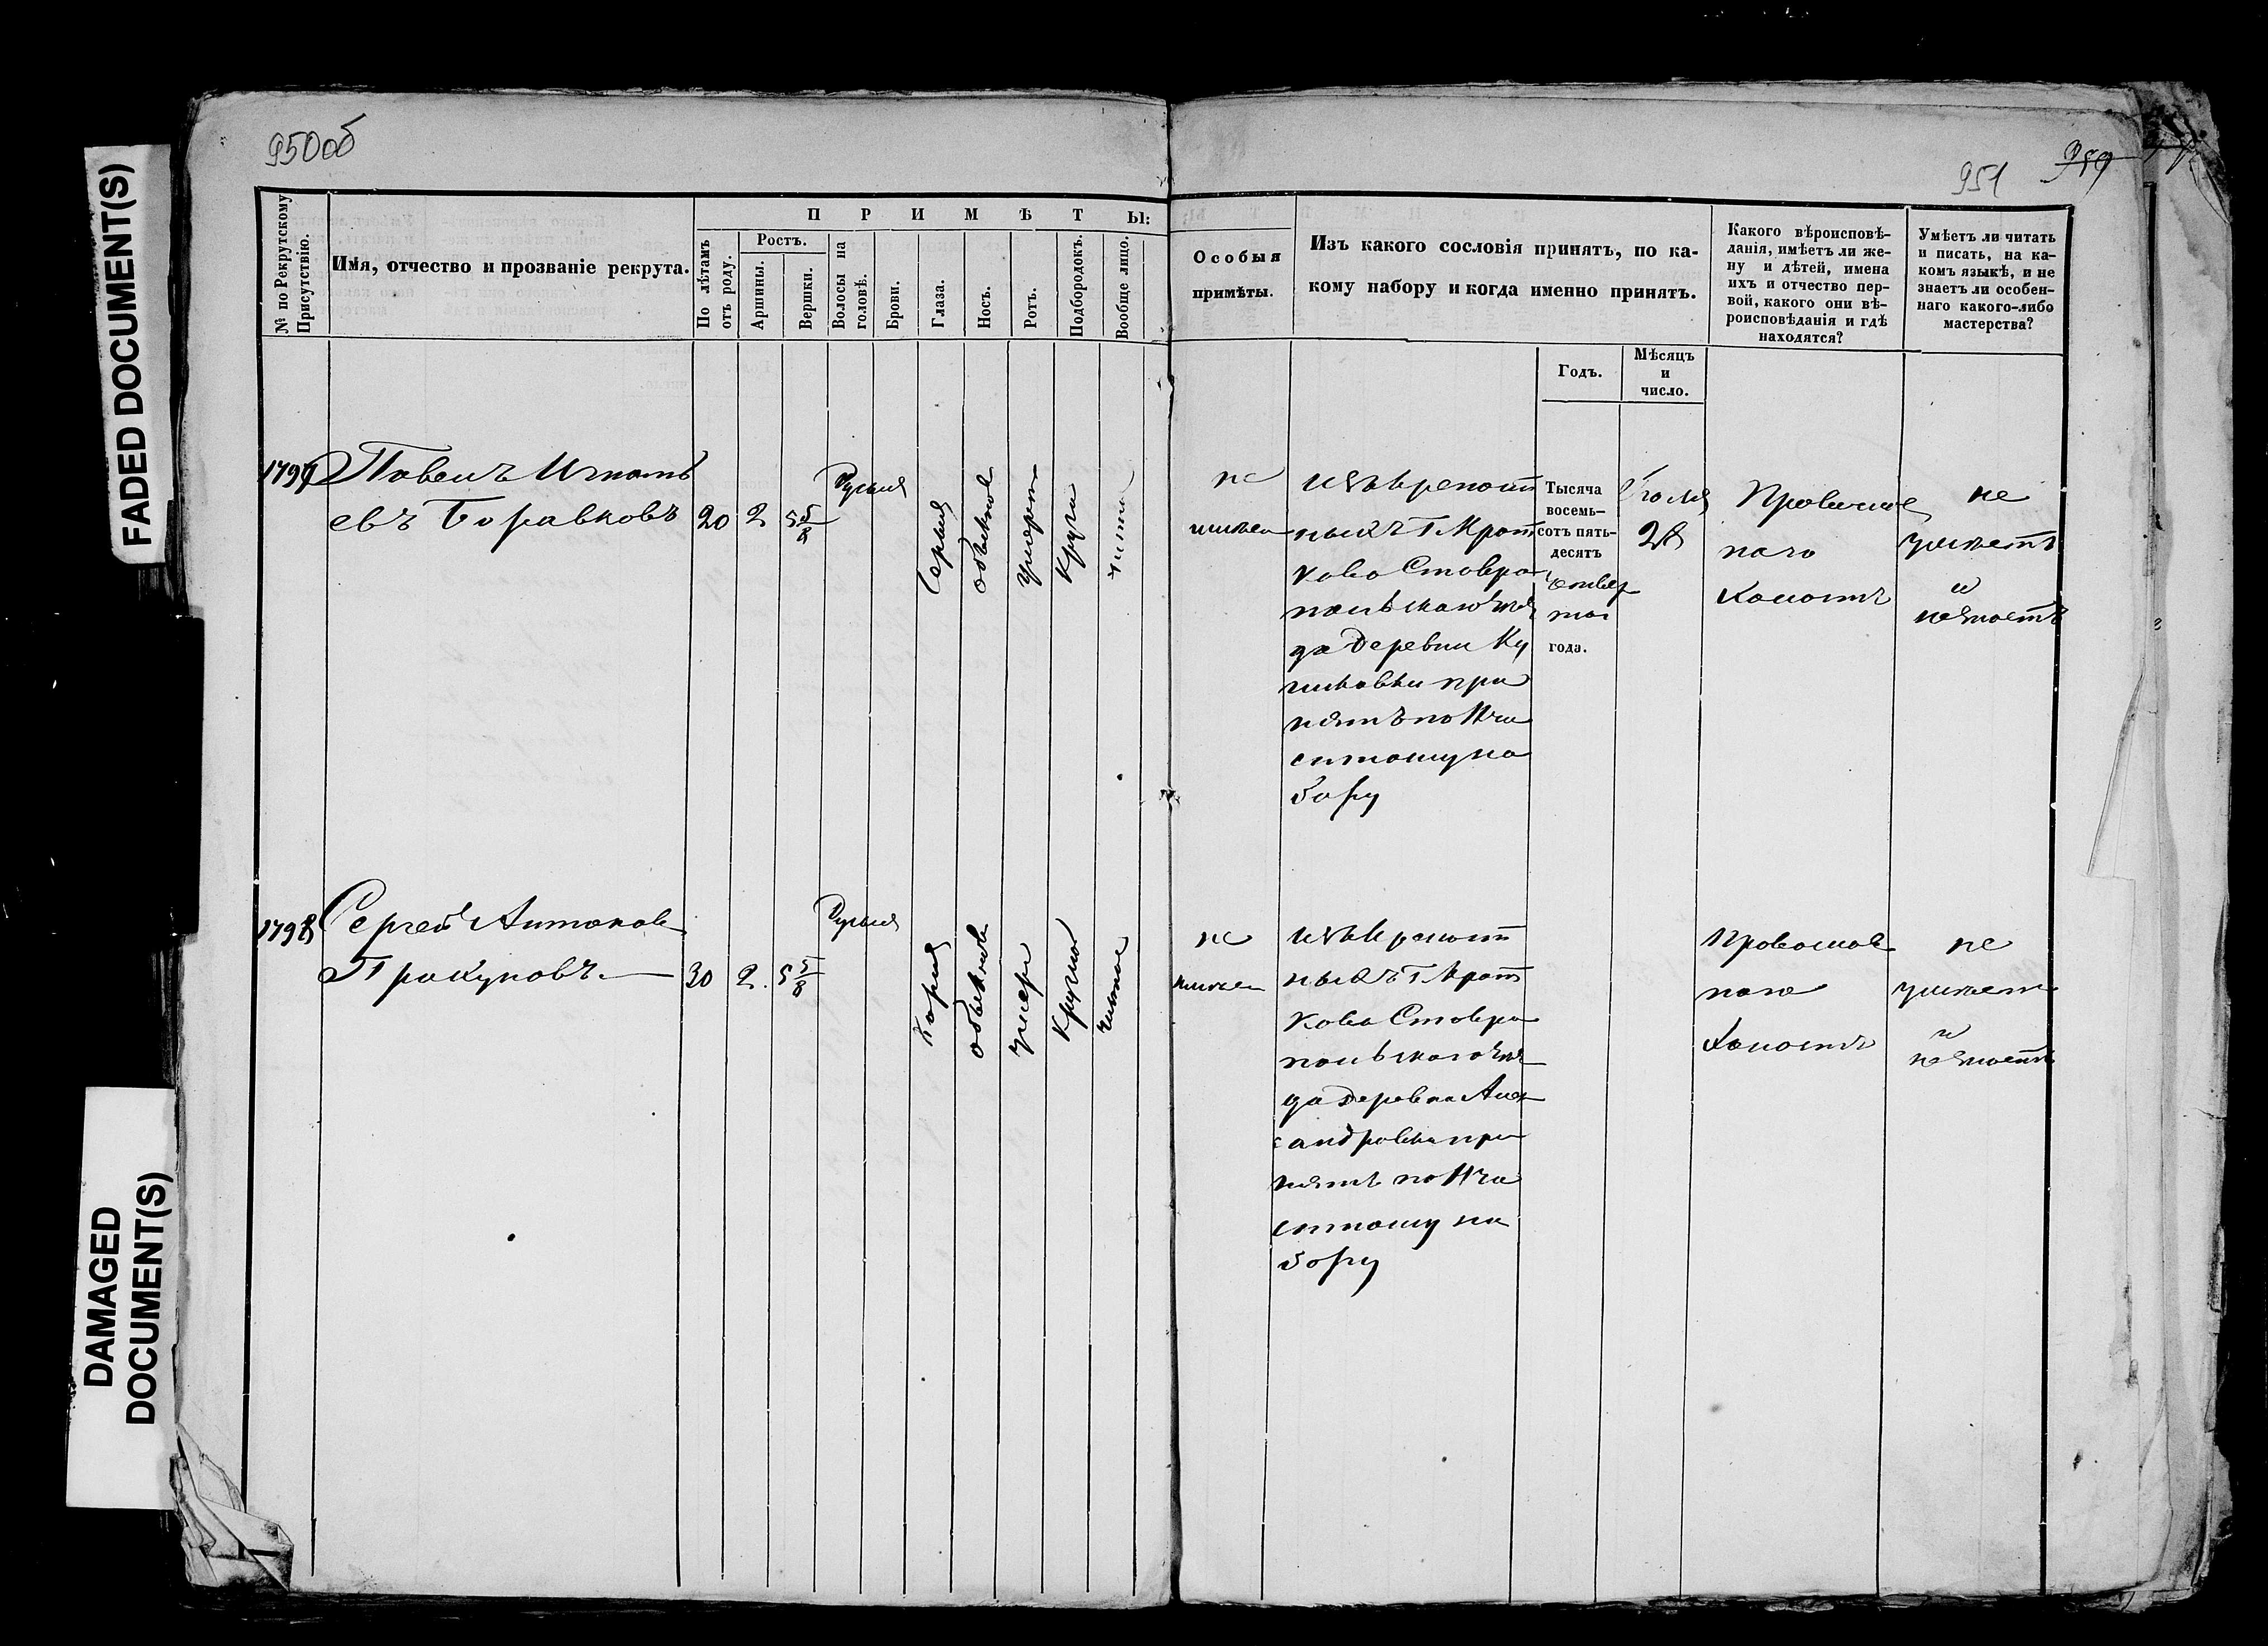 FADED DOCUMENT(S)
DAMAGED
DOCUMENT(S)
950об
951
959
№ по Рекрутскому
Присутствію.
Имя, отчество и прозваніе рекрута.
П Р И М Ѣ Т Ы:
По лѣтамъ
отъ роду.
Ростъ.
Аршины.
Вершки.
Волосы на
головѣ.
Брови.
Глаза.
Носъ.
Ротъ.
Подбородокъ.
Вообще лицо.
Особыя
примѣты.
Изъ какого сословія принятъ, по ка-
кому набору и когда именно принятъ.
Годъ.
Мѣсяцъ
и
число.
Какого вѣроисповѣ-
данія, имѣетъ ли же-
ну и дѣтей, имена
ихъ и отчество пер-
вой, какого они вѣ-
роисповѣданія и гдѣ
находятся?
Умѣетъ ли читать
и писать, на ка-
комъ языкѣ, и не
знаетъ ли особен-
наго какого-либо
мастерства?
1797
Павелъ Игнатъ
евъ Боравковъ
20
2
5 5/8
Русыя
Серыя
обыкнов
умерен
кругл
чисто
не
имеет
изъ крепост
ныхъ Г. Крот
кова Ставро
польскаго уез
да деревни Ку
ликовки при
нятъ по II ча
стному на
бору
Тысяча
восемь-
сотъ пять-
десятъ
четвер
таго
года.
Іюля
28
Православ
наго
Холостъ
не
умѣетъ
и
не знаетъ
1798
Сергей Антонов
Пракуповъ
30
2.
5 5/8
Русыя
Кария
обыкнов
умер
Круглой
чистое
не
имеет
изъ крепост
ныхъ Г. Крот
кова Ставро
польскаго уез
да деревни Алек
сандровки при
нятъ по II ча
стному на
бору
Православ
наго
Холостъ
не
умѣетъ
и
не знаетъ